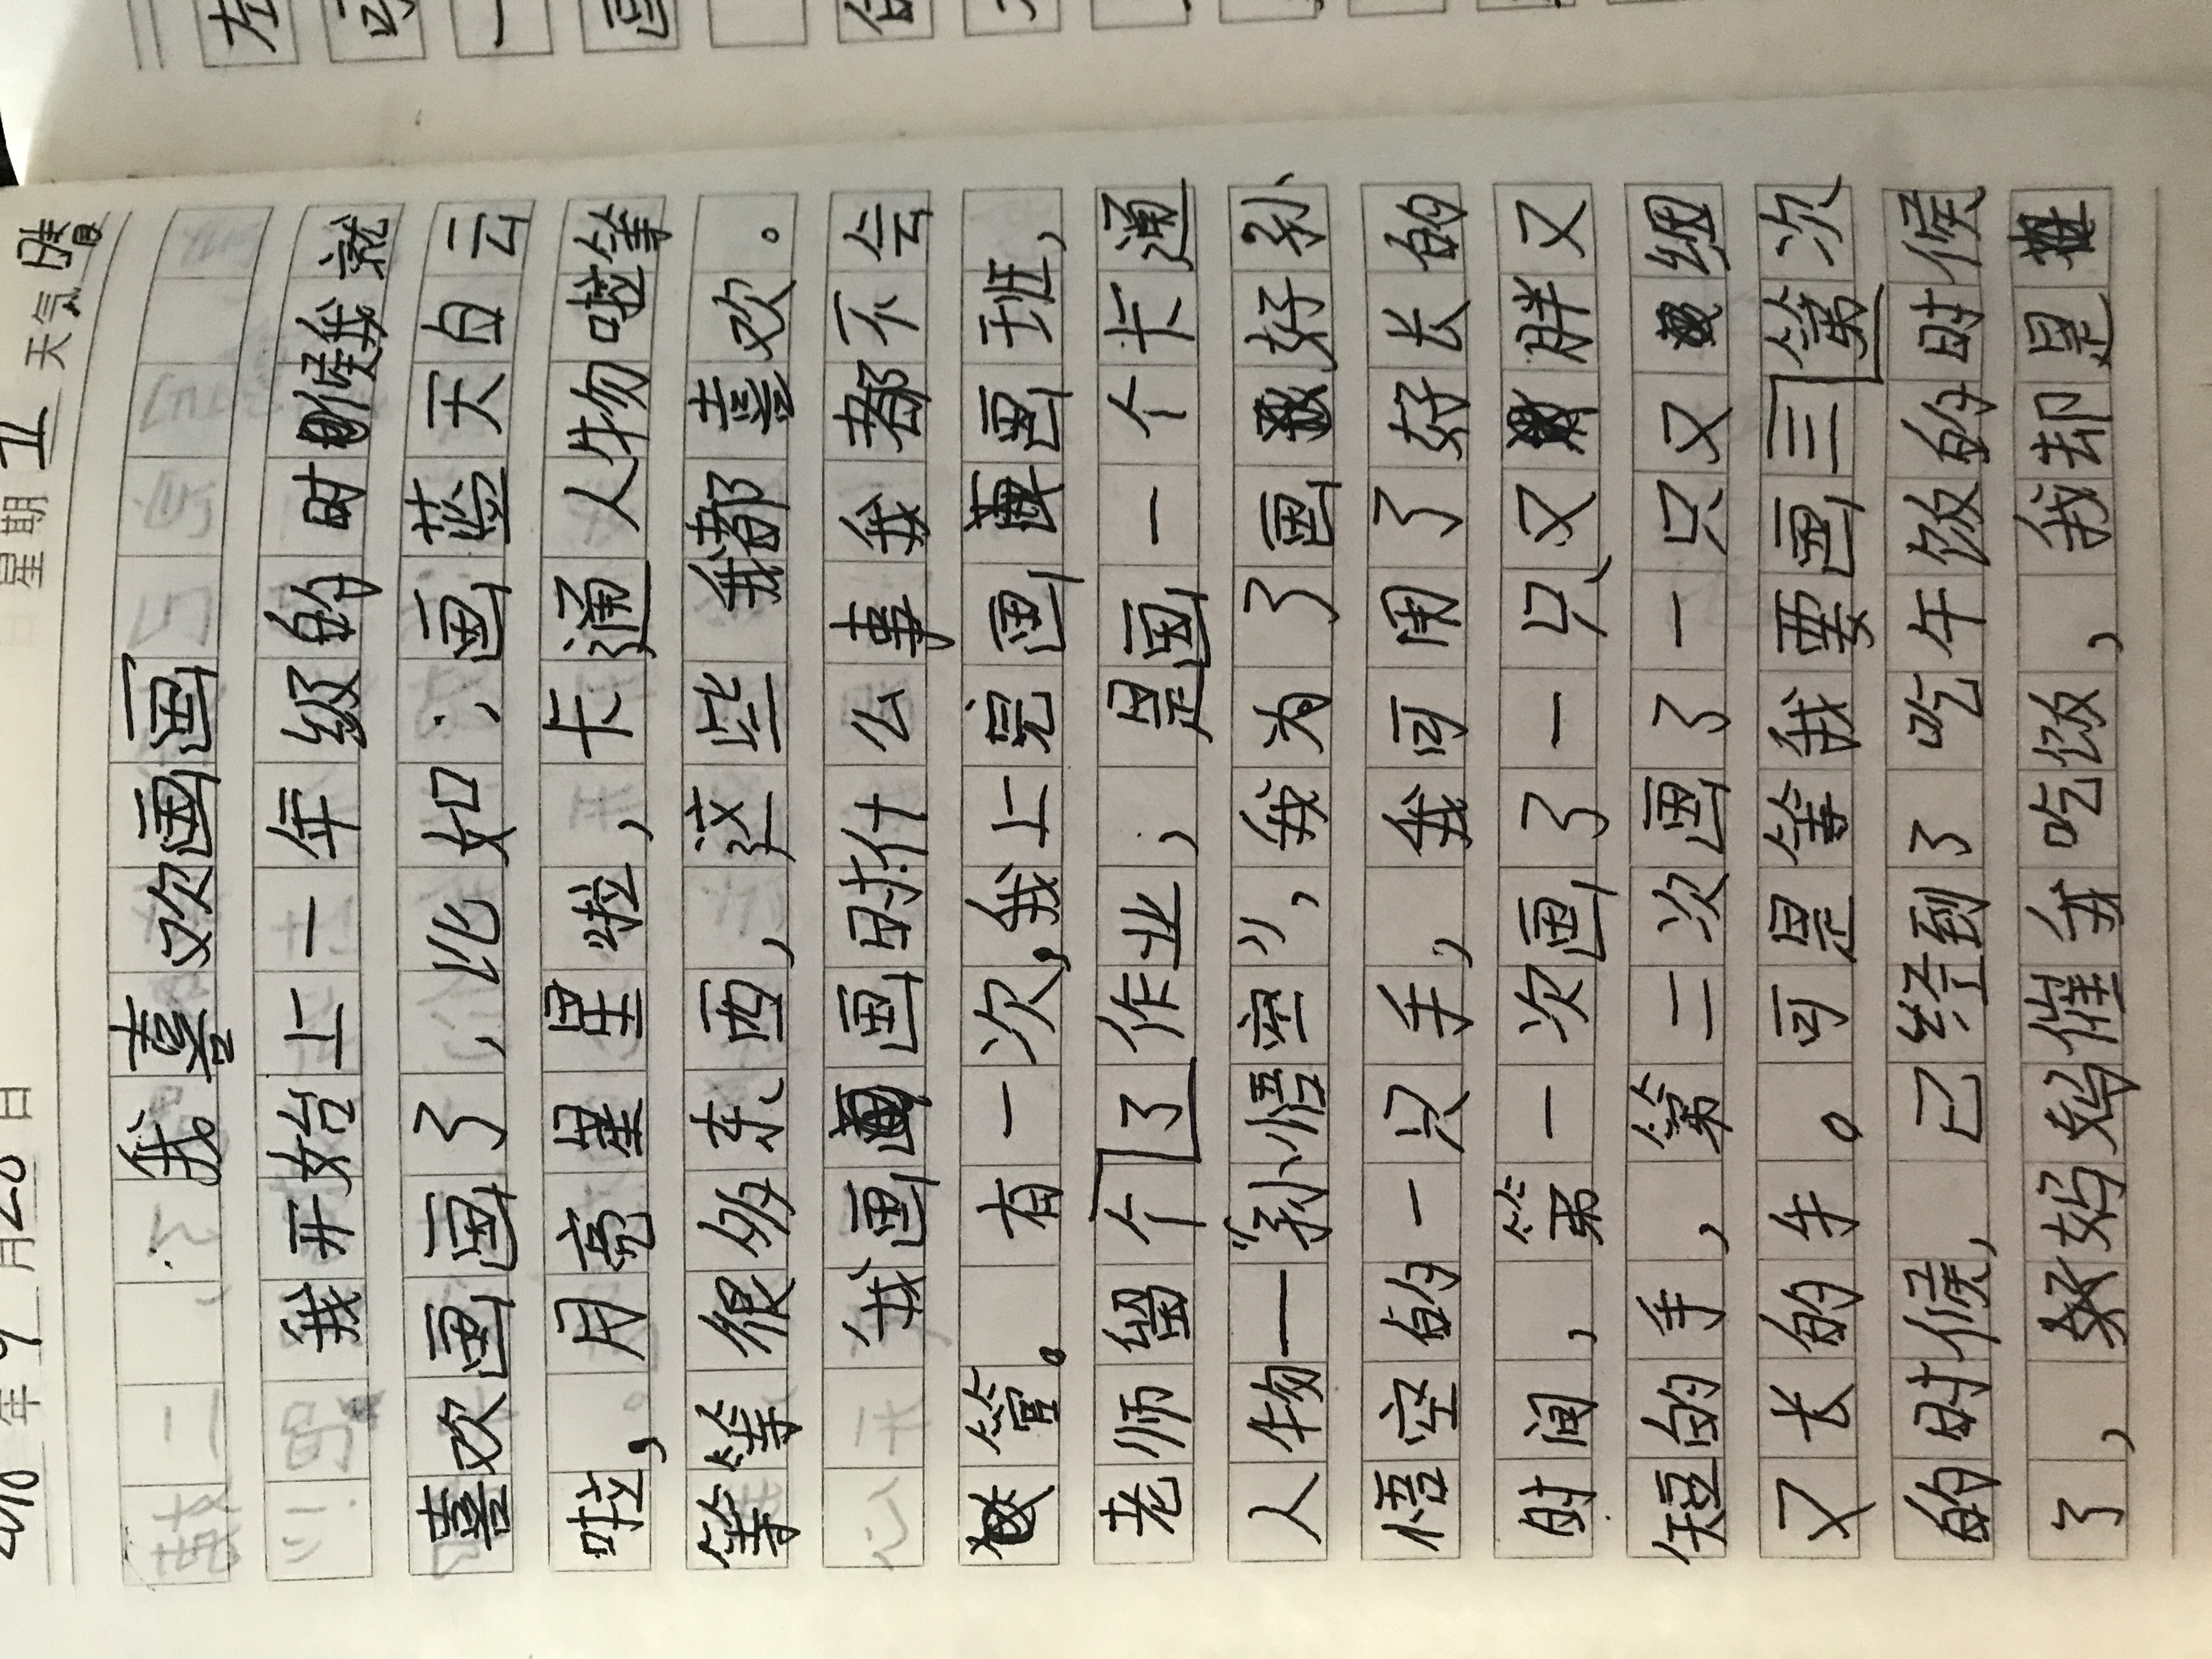 年 9 月20日 星期 五 天氣 晴
我喜欢画画
我开始上一年级的时候我就
喜欢画画了,比如:画蓝天白云
啦,月亮星星啦,卡通人物啦等
等等很多东西,这些我都喜欢。
我画画时什么事我都不会
管。有一次,我上完画画班,
老师留了个作业,是画一个卡通
人物—“孙悟空”,我为了画好孙
悟空的一只手,我可用了好长的
时间,第一次画了一只又胖又
短的手,第二次画了一只又细
又长的手。可是等我要画第三次
的时候,已经到了吃午饭的时候
了,妈妈催我吃饭,我却是